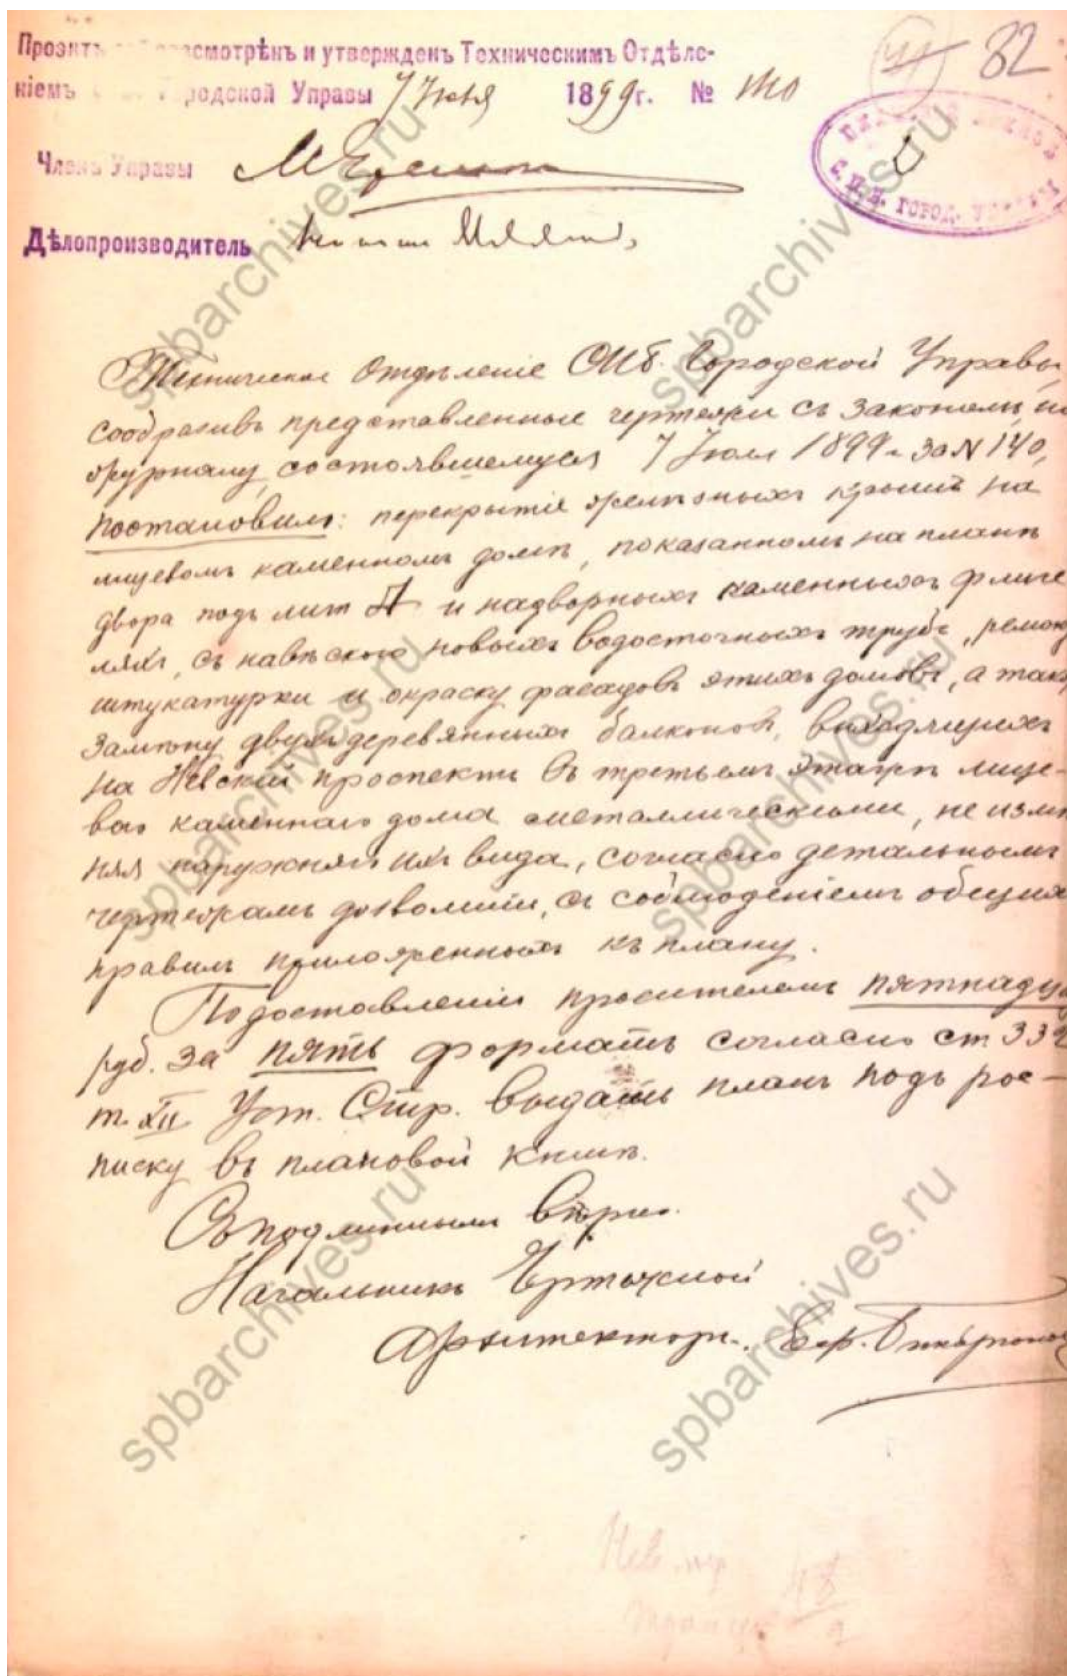 82
Проэктъ сей разсмотрѣнъ и утвержденъ Техническимъ Отдѣле-
ніемъ Городской Управы 7 Іюля 1899 г. № 140
Членъ Управы
Дѣлопроизводитель
С. П. Б. ГОРОД. УПРАВЫ
Техническое Отдѣленіе СПб. Городской Управы,
сообразивъ представленные чертежи съ законами, по
журналу, состоявшемуся 7 Іюля 1899 г. за № 140,
постановило: перекрытіе желѣзныхъ крышъ на
лицевомъ каменномъ домѣ, показанномъ на планѣ
двора подъ лит А и надворныхъ каменныхъ флиге
ляхъ, съ навѣскою новыхъ водосточныхъ трубъ, ремон
штукатурки и окраску фасадовъ этихъ домовъ, а так
замѣну двухъ деревянныхъ балконовъ, выходящихъ
на Невскій проспектъ въ третьемъ этажѣ лице-
ваго каменнаго дома металлическими, не измѣ
няя наружняго ихъ вида, согласно детальнымъ
чертежамъ дозволить, съ соблюденіемъ общихъ
правилъ приложенныхъ къ плану.
По доставленіи просителемъ пятнадца
руб. за пять форматъ согласно ст 332
т. XII Уст. Стр. выдать планъ подъ рос-
писку въ плановой книгѣ.
Съ подлиннымъ вѣрно.
Начальникъ Чертежной
Архитекторъ
Нев. пр
48
spbarchives.ru
spbarchives.ru
spbarchives.ru
spbarchives.ru
spbarchives.ru
spbarchives.ru